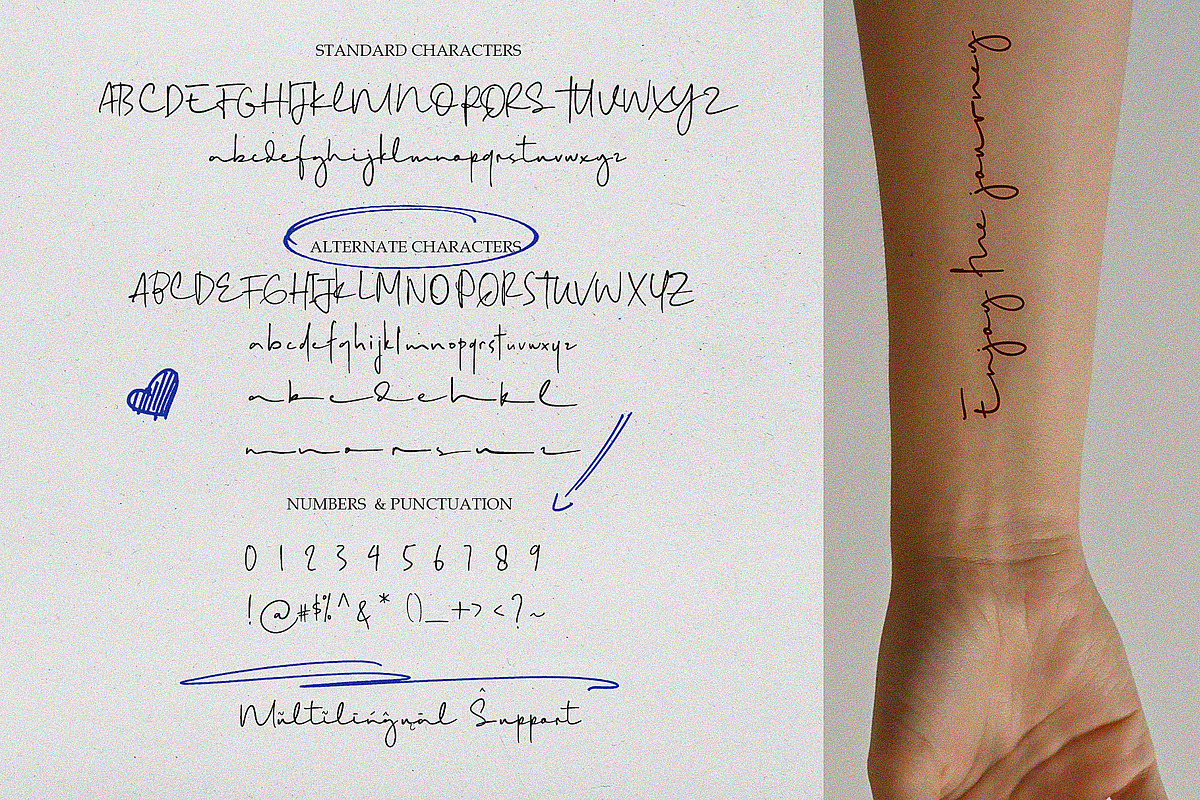 STANDARD CHARACTERS
ABCDEFGHIJKLMNOPQRSTUVWXYZ
abcdefghijklmnopqrstuvwxyz
ALTERNATE CHARACTERS
ABCDEFGHIJKLMNOPQRSTUVWXYZ
abcdefghijklmnopqrstuvwxyz
a b c d e h k l
m n o r s u z
NUMBERS & PUNCTUATION
0 1 2 3 4 5 6 7 8 9
! @ # $ % ^ & * ( ) _ + > < ? ~
Mũltĩlīńĝųāl Ŝupport
Enjoy the journey